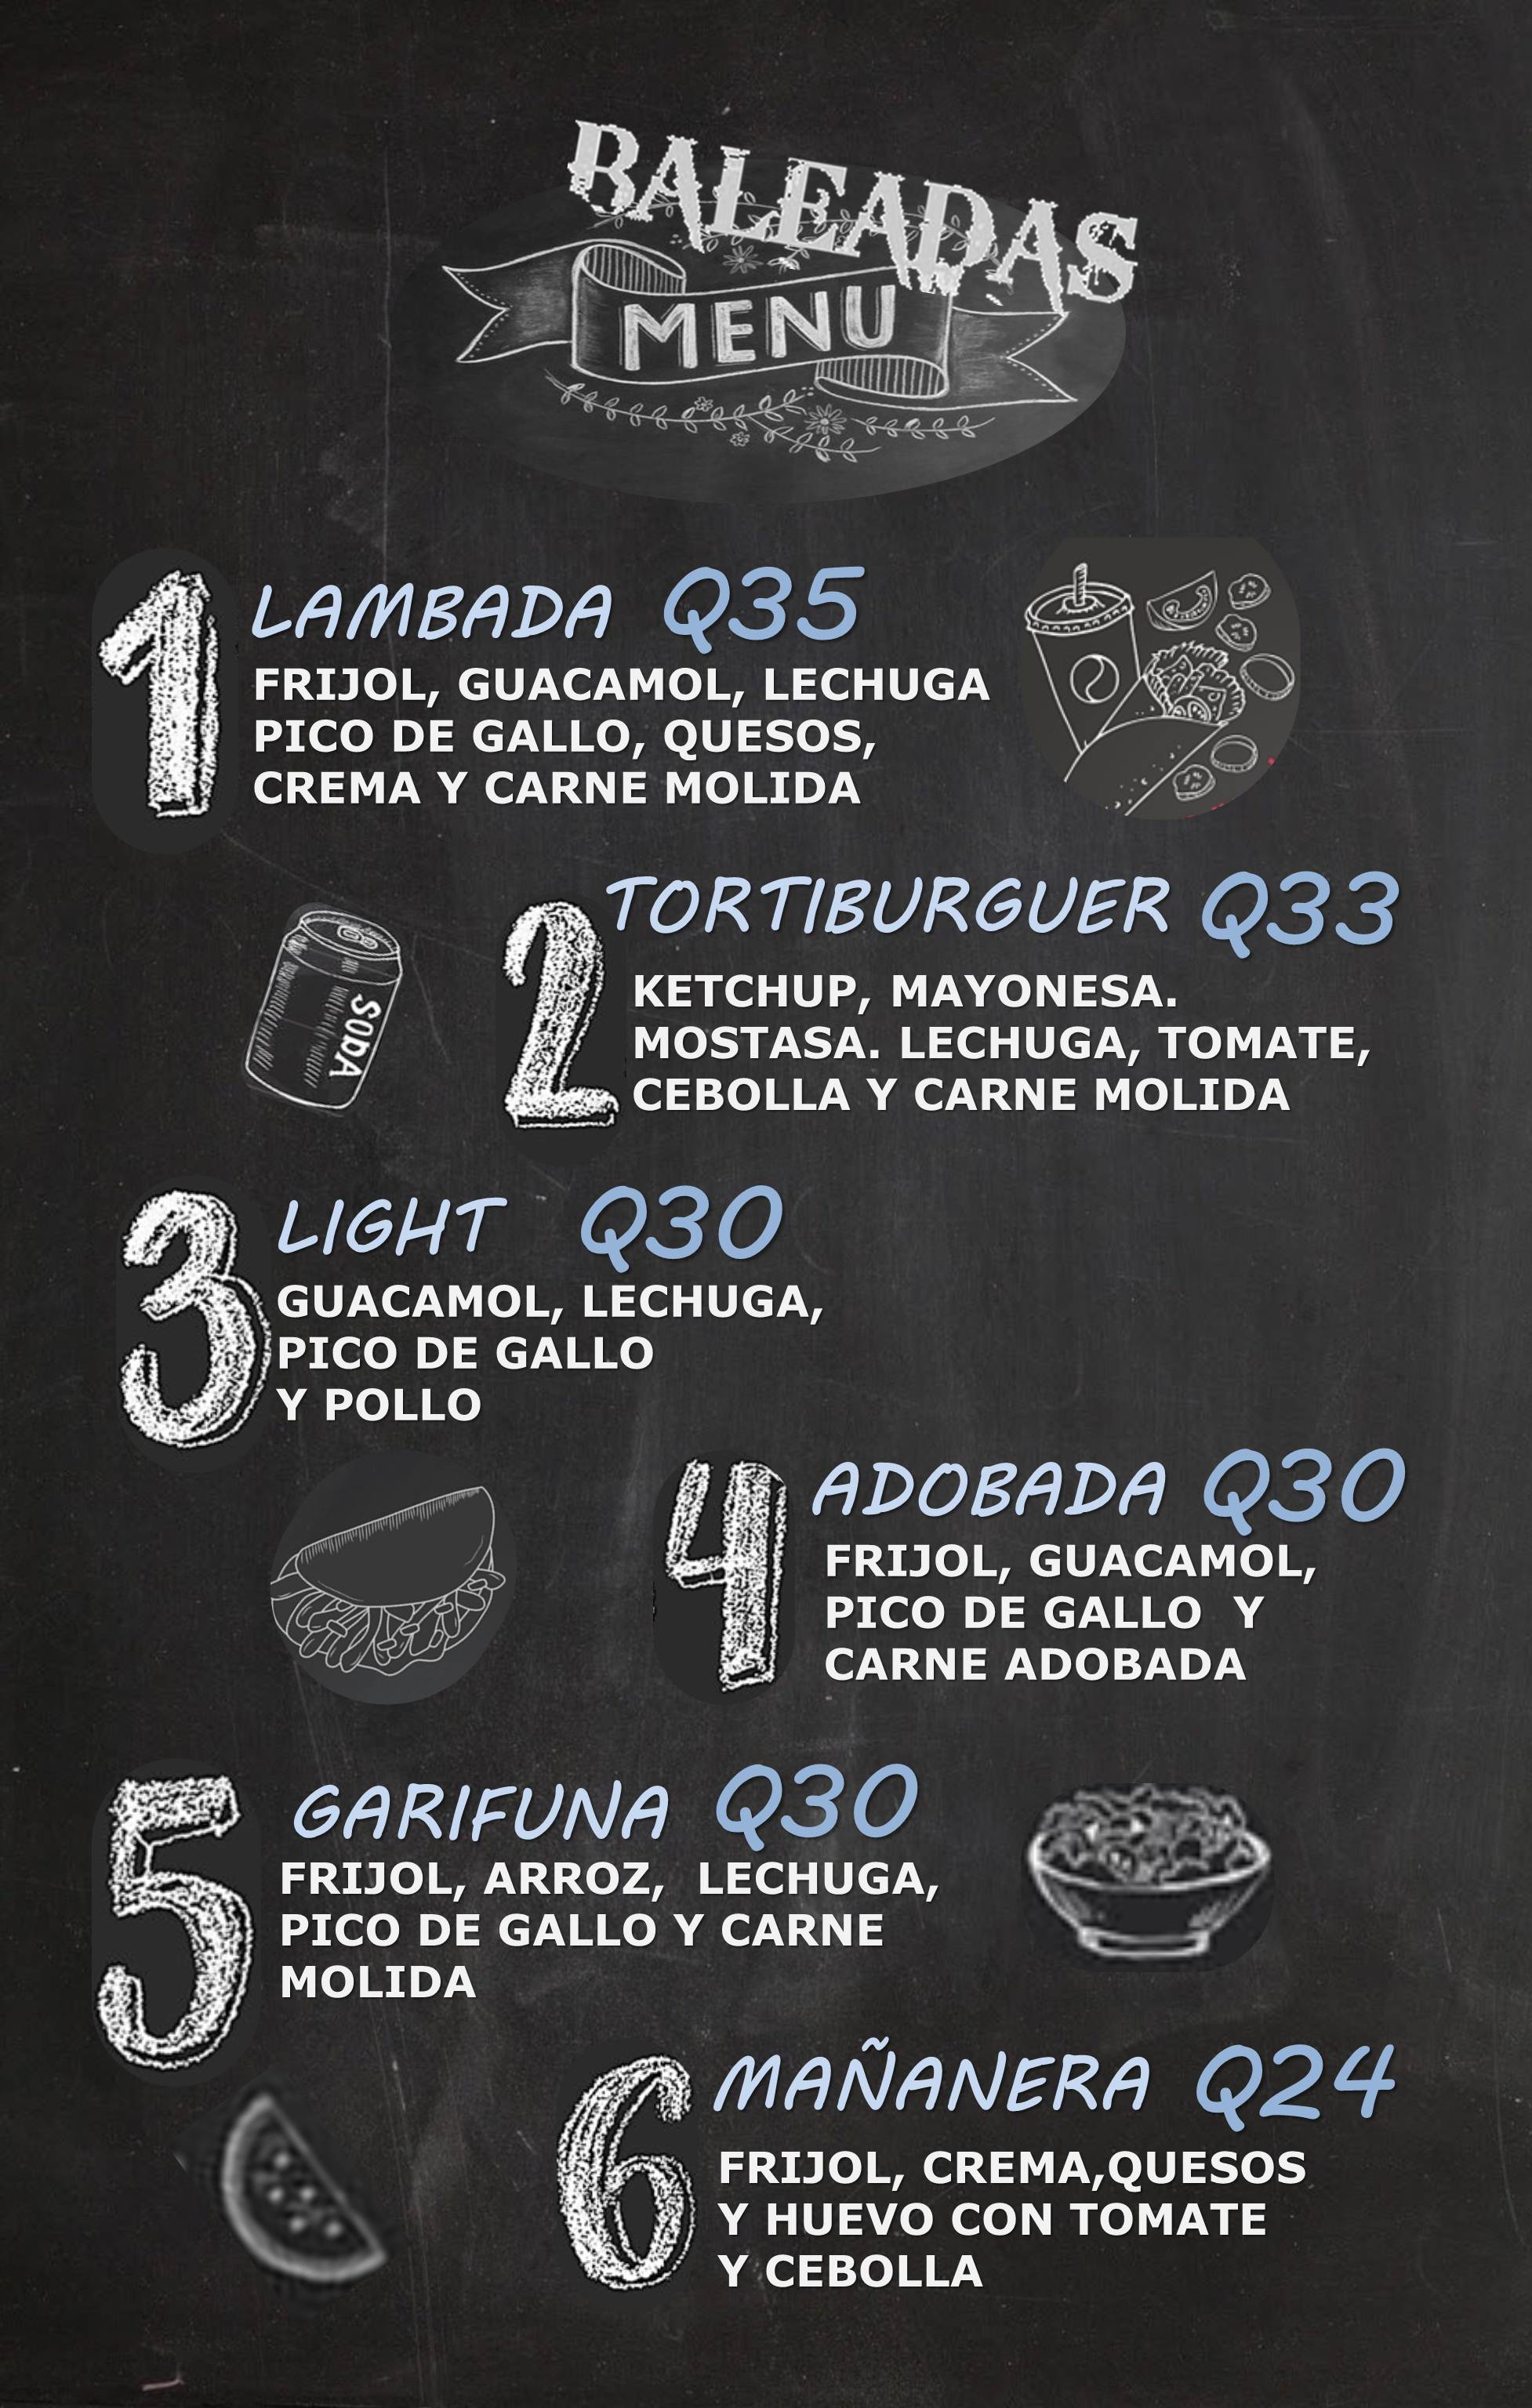 BALEADAS
MENU
1
LAMBADA Q35
FRIJOL, GUACAMOL, LECHUGA
PICO DE GALLO, QUESOS,
CREMA Y CARNE MOLIDA
SODA
2
TORTIBURGUER Q33
KETCHUP, MAYONESA.
MOSTASA. LECHUGA, TOMATE,
CEBOLLA Y CARNE MOLIDA
3
LIGHT Q30
GUACAMOL, LECHUGA,
PICO DE GALLO
Y POLLO
4
ADOBADA Q30
FRIJOL, GUACAMOL,
PICO DE GALLO Y
CARNE ADOBADA
5
GARIFUNA Q30
FRIJOL, ARROZ, LECHUGA,
PICO DE GALLO Y CARNE
MOLIDA
6
MAÑANERA Q24
FRIJOL, CREMA,QUESOS
Y HUEVO CON TOMATE
Y CEBOLLA